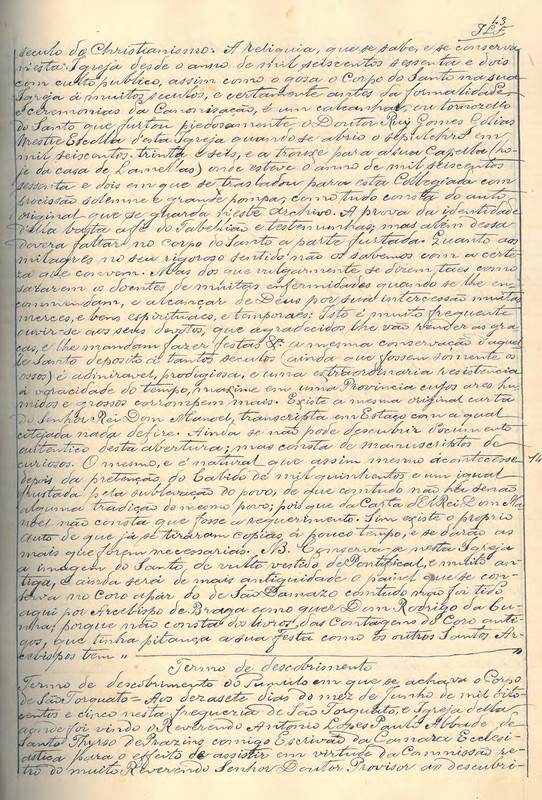 43
seculo do Christianismo. A reliquia, que se sabe, e se conserva
n'esta Igreja desde o anno de mil seiscentos sessenta e dois
com culto publico, assim como o gosa o Corpo do Santo na sua
Igreja á muitos seculos, e certamente antes da formalidade
e ceremonias da Canonisação, é um calcanhar, ou tornozello
do Santo que furtou piedosamente o Doutor Rui Gomes
Mestre Escolla d'esta Igreja quando se abrio o sepulchro em
mil seiscentos trinta e seis, e a trouxe para a sua Capella (ho-
je da casa de) onde esteve o anno de mil seiscentos
sessenta e dois em que se trasladou para esta Collegiada com
procissão solemne e grande pompa, como tudo consta do auto
original que se guarda n'este Archivo. A prova da identidade
d'ella basta a fé do Tabelião e testemunhas, mas alem dessa
devera faltar no corpo do Santo a parte furtada. Quanto aos
milagres no seu rigoroso sentido não os sabemos com a certe-
za que convem. Mas dos que vulgarmente se dizem taes como
sararem os doentes de muitas enfermidades quando se lhe en-
commendam, e alcançar de Deus por sua intercessão muitas
merces, e bens espirituaes, e temporaes: Isto é muito frequente
ouvir-se aos seus devotos, que agradecidos lhe vão render as gra-
ças, e lhe mandam fazer festas &ª. a mesma conservação d'aquel-
le Santo deposito á tantos seculos (ainda que fossem somente os
ossos) é admiravel, prodigiosa, e uma extraordinaria resistencia
á voracidade do tempo, maxime em uma Provincia cujos ares hu-
midos e grossos corrompem mais. Existe a mesma original carta
do Senhor Rei Dom Manoel, transcripta em Estaço com a qual
cotejada nada defire. Ainda se não pode descubrir documento
autentico desta abertura; mas consta de manuscriptos de
curiosos. O mesmo, e é natural que assim mesmo acontecesse
depois da pretenção do Cabido de mil quinhentos e um igual 14
frustada pela sublevação do povo, de que comtudo não ha senão
alguma tradição do mesmo povo; pois que da Carta d'El Rei Dom Ma-
noel não consta que fosse a requerimento. Sim existe o proprio
Auto de que já se tiraram copias á pouco tempo, e se darão as
mais que forem necessarias. NB. Conserva-se nesta Igreja
a imagem do Santo, de vulto vestido de Pontifical, e muito an-
tiga, e ainda será de mais antiguidade o painel que se con-
serva no Coro a par do de São Damazo comtudo não foi tido
aqui por Arcebispo de Braga como quer Dom Rodrigo da Cu-
nha; porque não consta dos livros das Contagens do Coro anti-
gos, que tinha pitança a sua festa como os outros Santos Ar-
cebispos tem "
Termo de descobrimento
Termo de descobrimento do tumulo em que se achava o Corpo
de São Torquato = Aos dezasete dias do mez de Junho de mil oito-
centos e cinco nesta freguezia de São Torquato, e Igreja della
aonde foi vindo o Reverendo Antonio Lopes Paulo Abbade de
Santo Thyrso de Prazins comigo Escrivão da Camara Ecclesi-
astica para o effeito de assistir em virtude da Commissão re-
tro do muito Reverendo Senhor Doutor Provisor ao descubri-